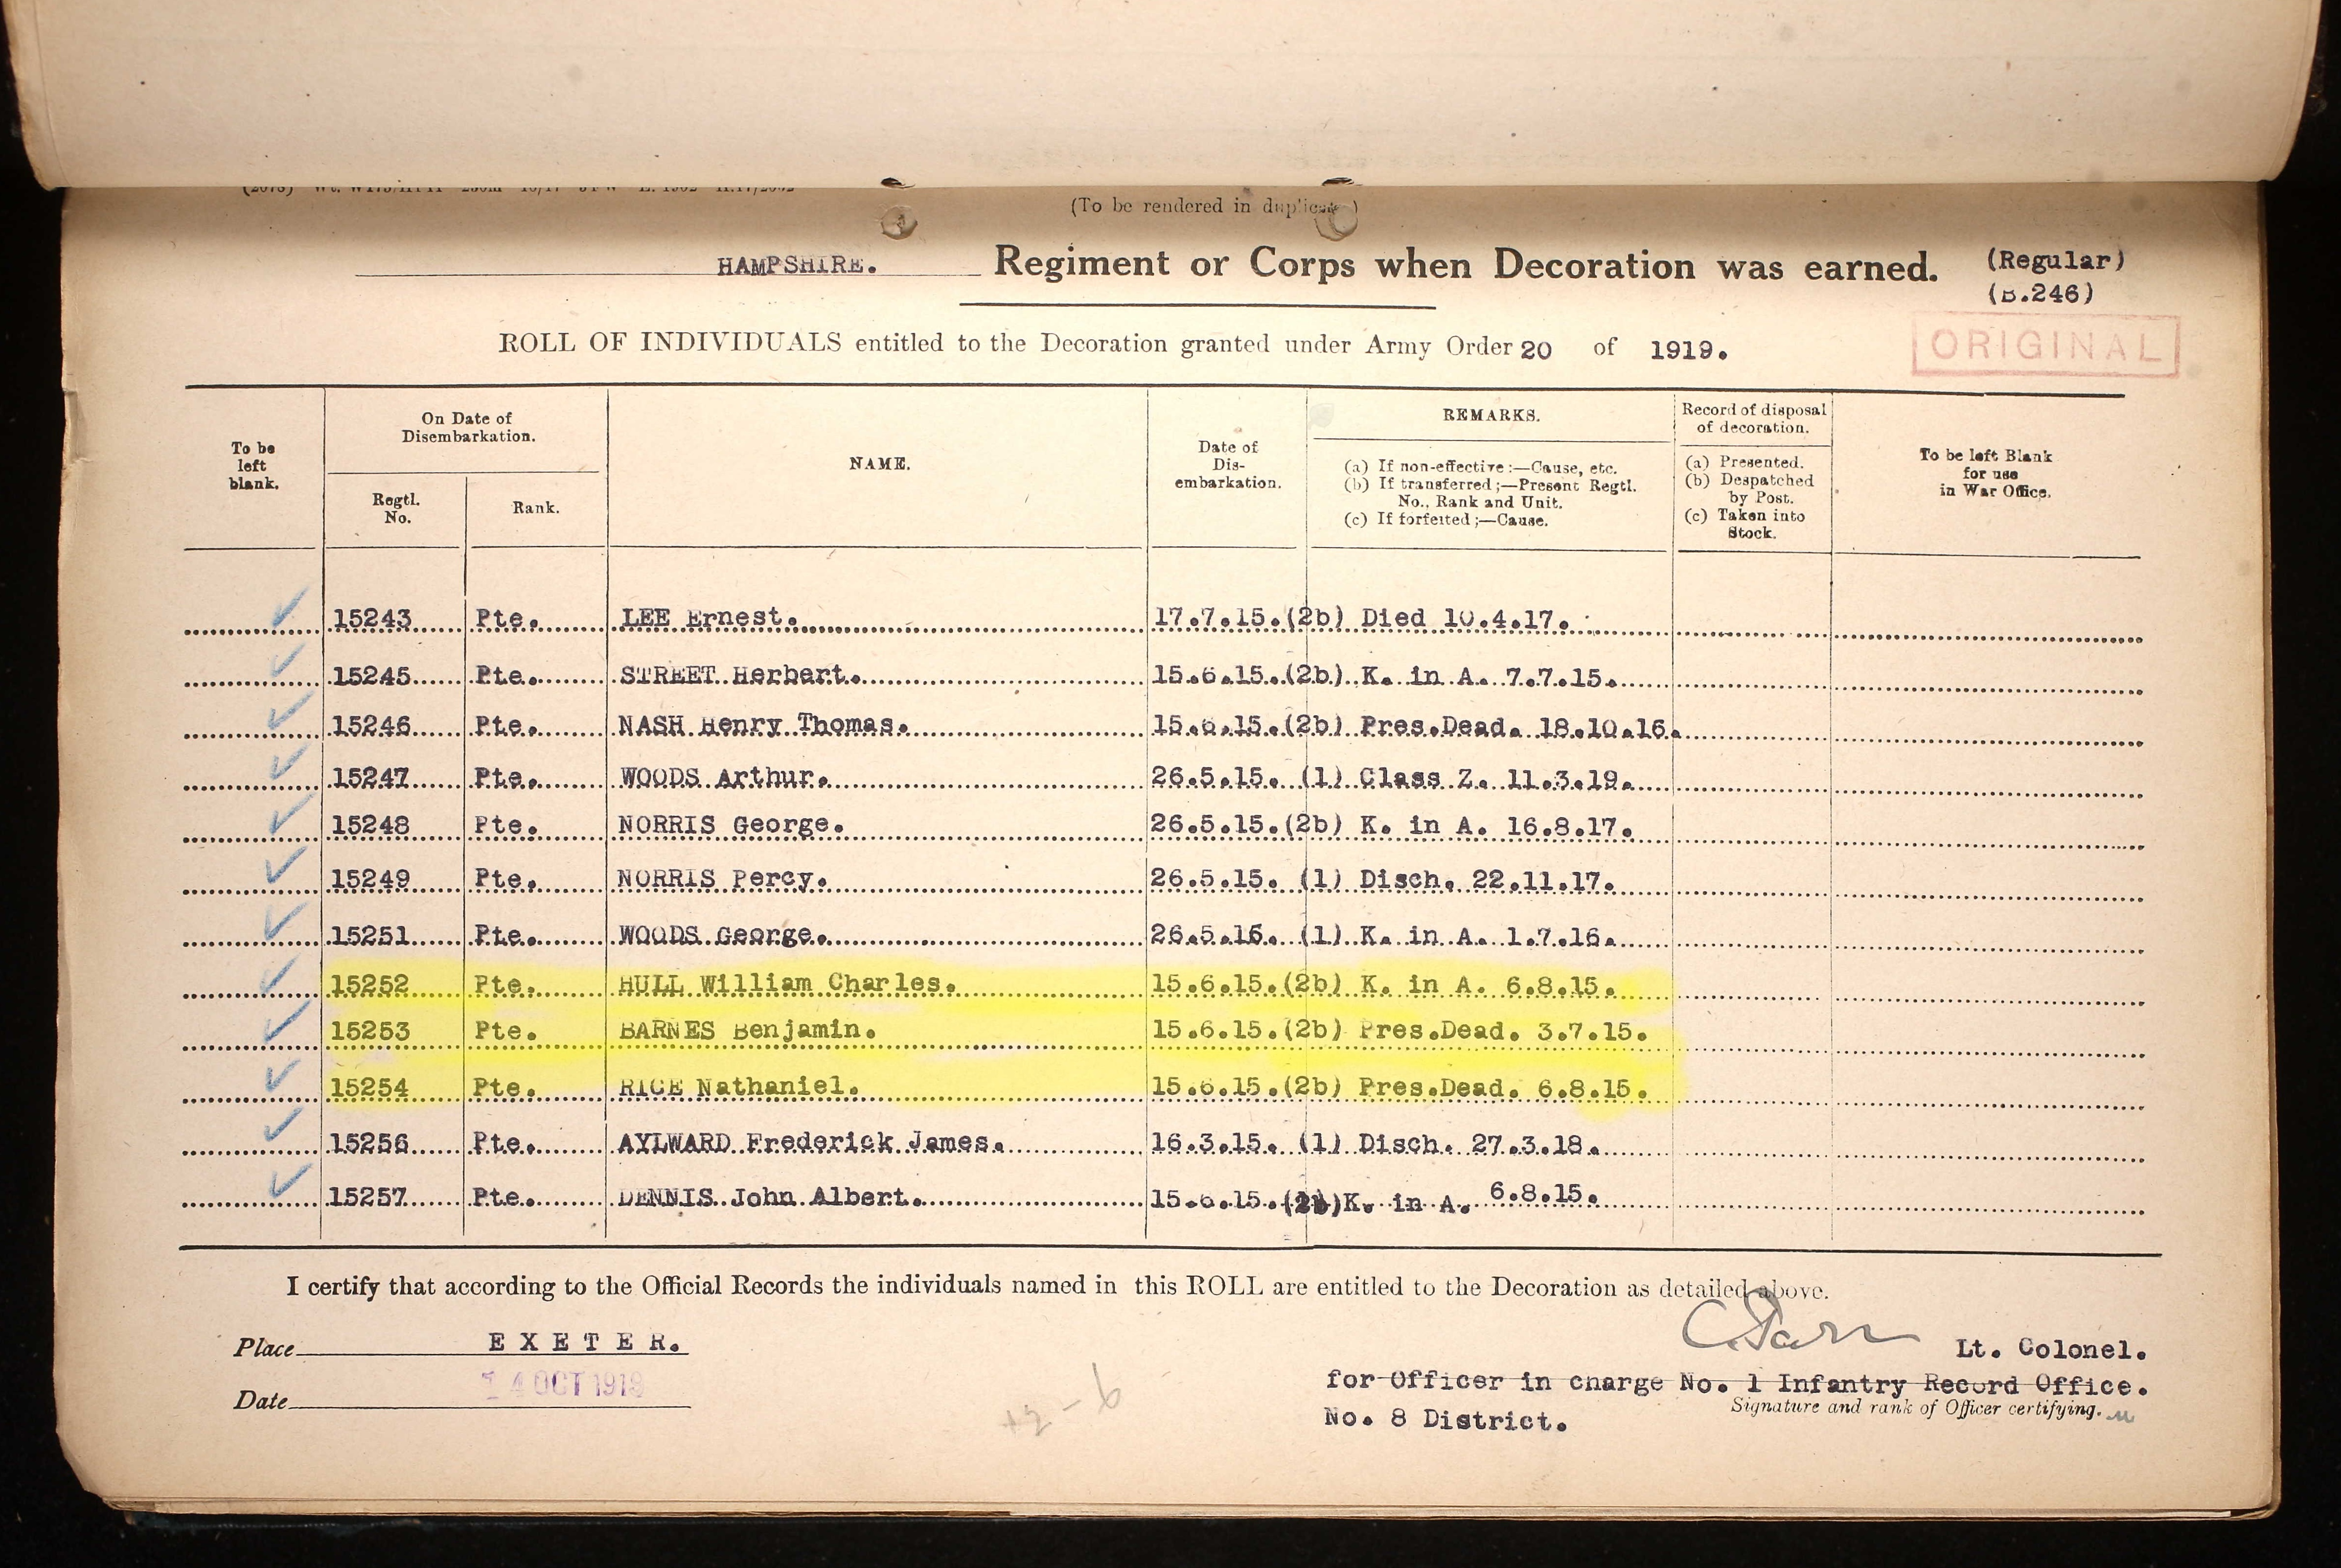 (To be rendered in duplicate)
HAMPSHIRE. Regiment or Corps when Decoration was earned. (Regular)
(B.246)
ORIGINAL
ROLL OF INDIVIDUALS entitled to the Decoration granted under Army Order 20 of 1919.
To be left blank.
On Date of Disembarkation.
Regtl. No.
Rank.
NAME.
Date of Dis-embarkation.
REMARKS.
(a) If non-effective :—Cause, etc.
(b) If transferred ;—Present Regtl. No., Rank and Unit.
(c) If forfeited ;—Cause.
Record of disposal of decoration.
(a) Presented.
(b) Despatched by Post.
(c) Taken into Stock.
To be left Blank for use in War Office.
15243 Pte. LEE Ernest. 17.7.15.(2b) Died 10.4.17.
15245 Pte. STREET Herbert. 15.6.15.(2b) K. in A. 7.7.15.
15246 Pte. NASH Henry Thomas. 15.6.15.(2b) Pres.Dead. 18.10.16.
15247 Pte. WOODS Arthur. 26.5.15. (1) Class Z. 11.3.19.
15248 Pte. NORRIS George. 26.5.15.(2b) K. in A. 16.8.17.
15249 Pte. NORRIS Percy. 26.5.15. (1) Disch. 22.11.17.
15251 Pte. WOODS George. 26.5.15. (1) K. in A. 1.7.16.
15252 Pte. HULL William Charles. 15.6.15.(2b) K. in A. 6.8.15.
15253 Pte. BARNES Benjamin. 15.6.15.(2b) Pres.Dead. 3.7.15.
15254 Pte. RICE Nathaniel. 15.6.15.(2b) Pres.Dead. 6.8.15.
15256 Pte. AYLWARD Frederick James. 16.3.15. (1) Disch. 27.3.18.
15257 Pte. DENNIS John Albert. 15.6.15.(2b)K. in A. 6.8.15.
I certify that according to the Official Records the individuals named in this ROLL are entitled to the Decoration as detailed above.
Place EXETER.
Lt. Colonel.
for Officer in charge No. 1 Infantry Record Office.
Date 14 OCT 1919
Signature and rank of Officer certifying.
No. 8 District.